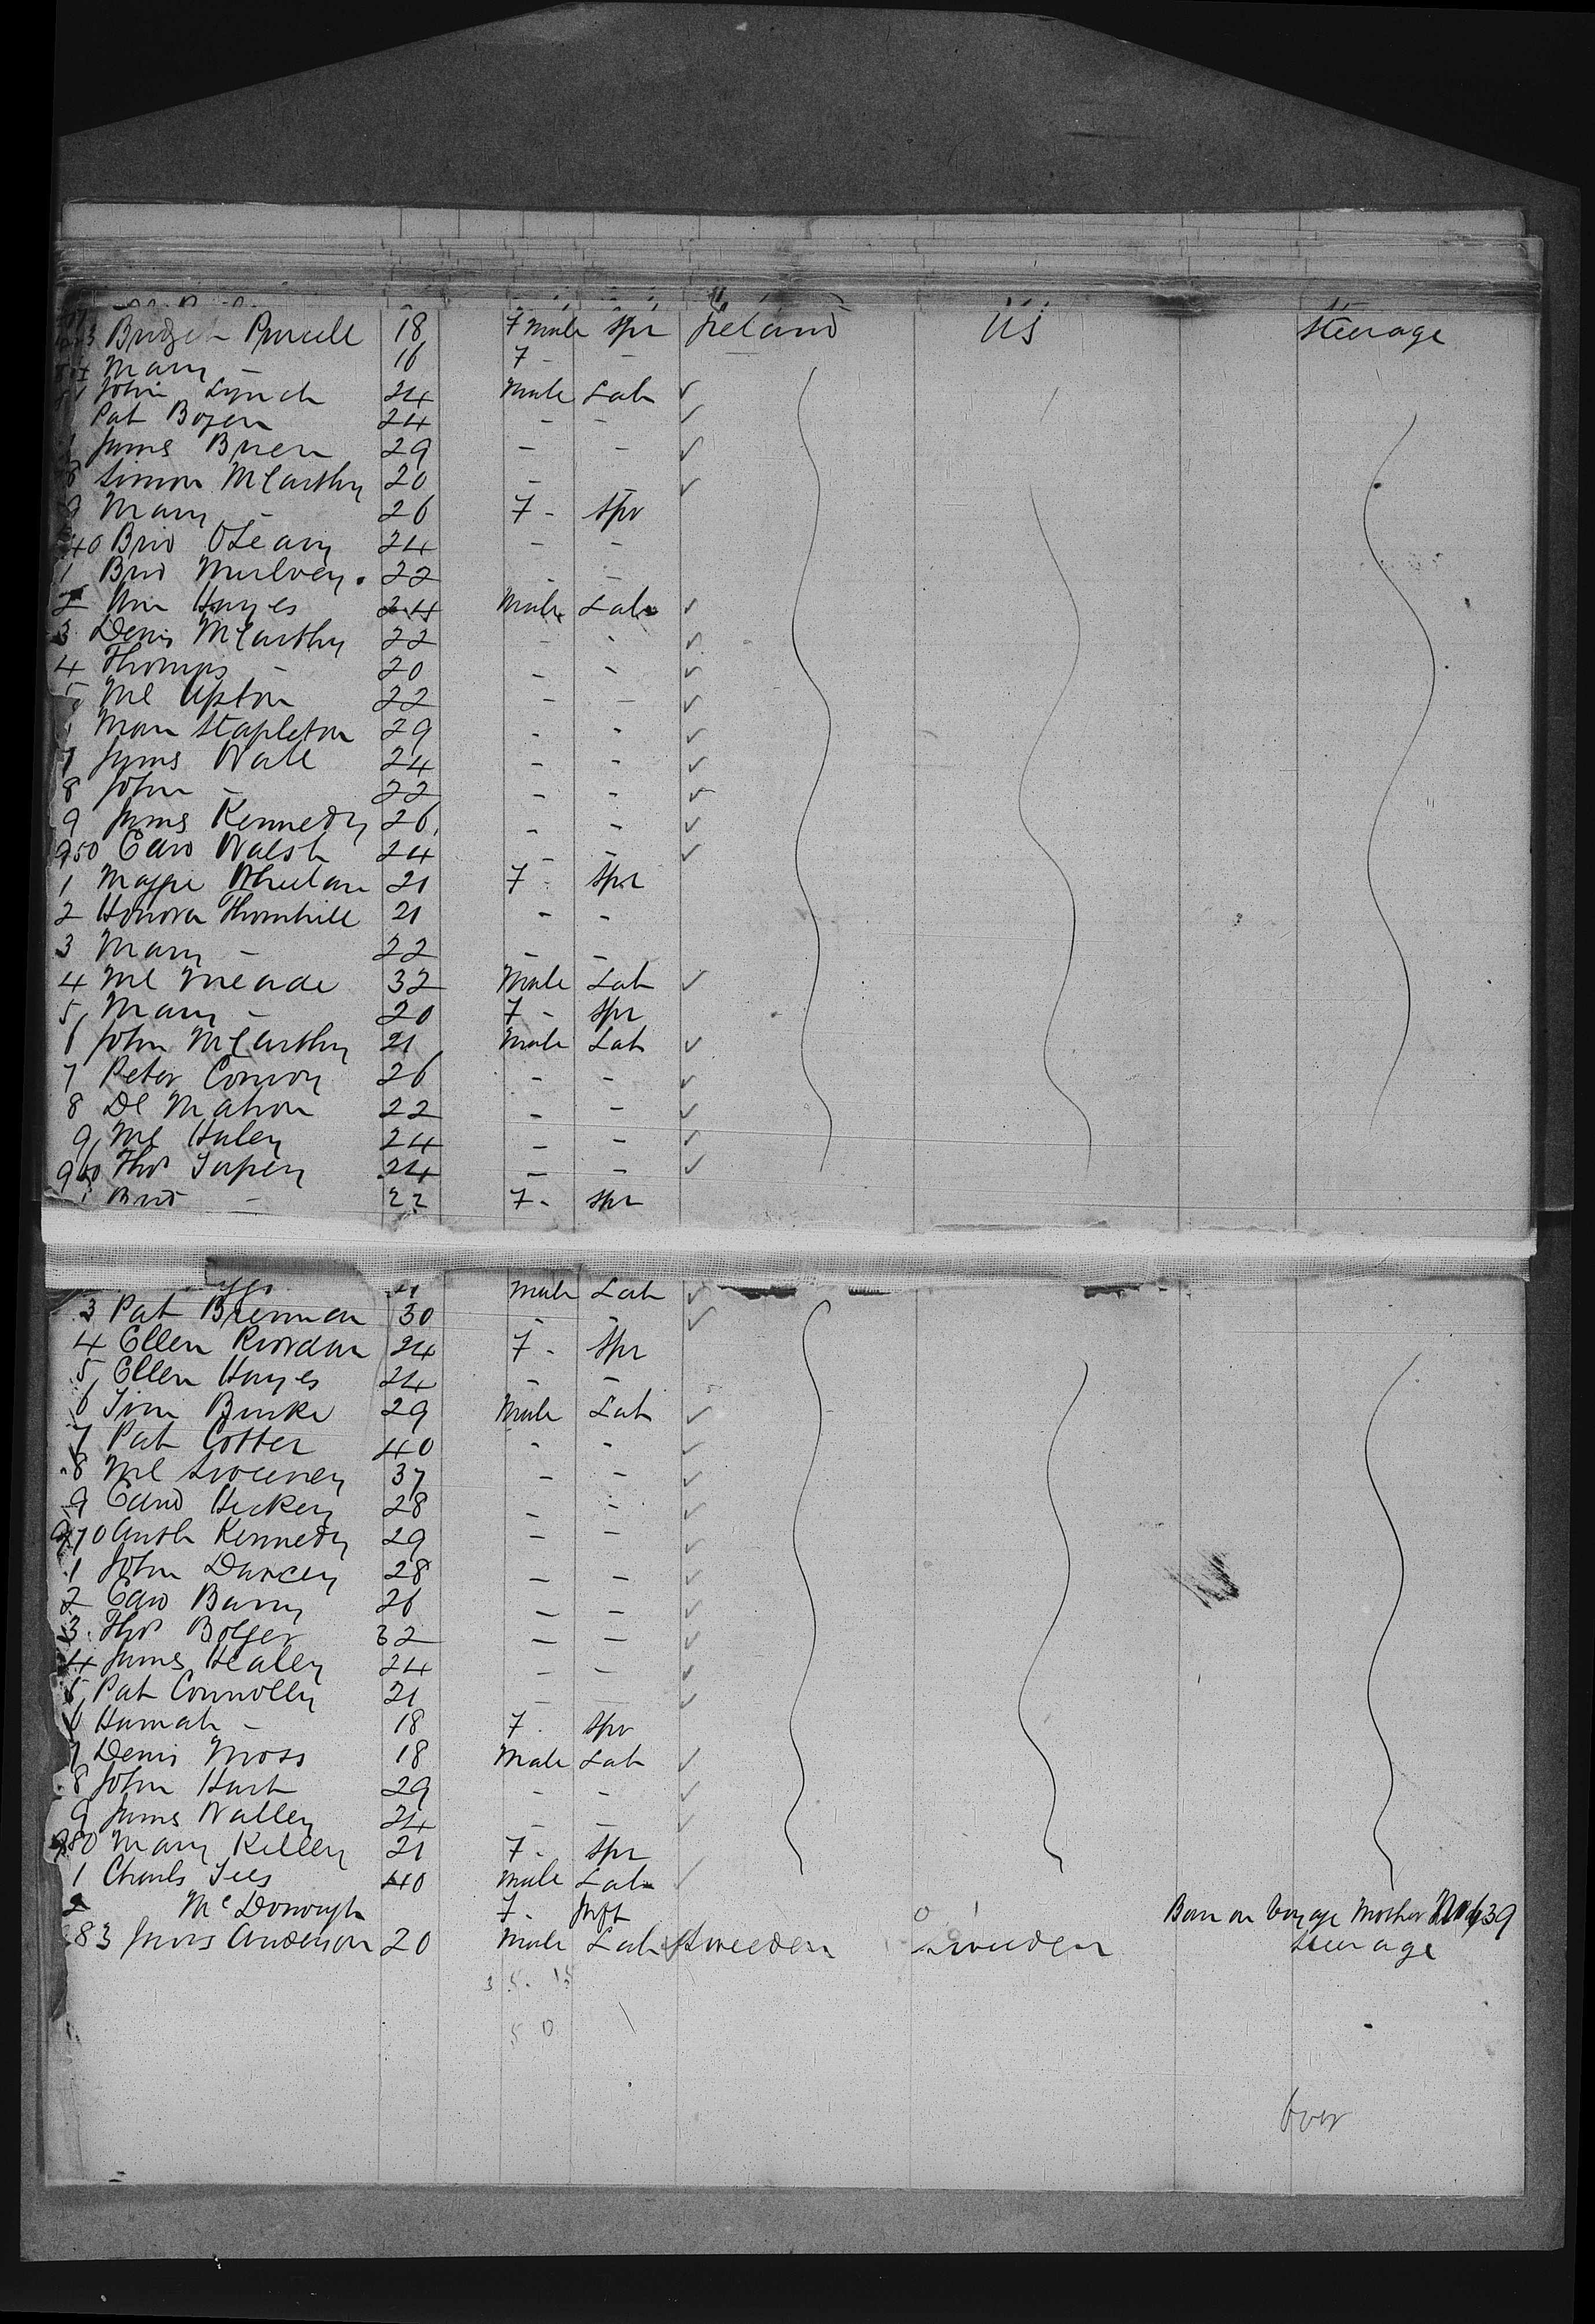 3 Bridget Purcell 18 Fmale Spr Ireland US Steerage
Mary - 16 F - -
John Lynch 24 Male Lab ✓
Pat Bogen 24 - - ✓
James Brien 29 - - ✓
8 Simon McCarthy 20 - - ✓
9 Mary - 26 F - Spr
40 Brid OLeary 24 - -
1 Brid Mulvey 22 - -
2 Ann Hayes 24 Male Lab ✓
3 Denis McCarthy 22 - - ✓
4 Thomas - 20 - - ✓
5 Ml Upton 22 - - ✓
Stapleton 29 - - ✓
7 James Wall 24 - - ✓
8 John - 22 - - ✓
9 James Kennedy 26 - - ✓
950 Edwd Walsh 24 - - ✓
1 Maggie Whelan 21 F - Spr
2 Honora Thornhill 21 - -
3 Mary - 22 - -
4 Ml Meade 32 Male Lab ✓
5 Mary - 20 F - Spr
6 John McCarthy 21 Male Lab ✓
7 Peter Conroy 26 - - ✓
8 Dl Mahon 22 - - ✓
9 Ml Haley 24 - - ✓
960 Thos 24 - - ✓
1 Brid - 22 F - Spr
Male Lab ✓
3 Pat Brennan 30 - - ✓
4 Ellen Riordan 24 F - Spr
5 Ellen Hayes 24 - -
6 Tim Burke 29 Male Lab ✓
7 Pat Cotter 40 - - ✓
8 Ml Sweeney 37 - - ✓
9 Edwd Hickey 28 - - ✓
970 Anth Kennedy 29 - - ✓
1 John Darcey 28 - - ✓
2 Edwd Barry 26 - - ✓
3 Thos Bolger 32 - - ✓
4 James Healey 24 - - ✓
5 Pat Connolly 21 - - ✓
6 Hannah - 18 F - Spr
7 Denis Moss 18 Male Lab ✓
8 John Hart 29 - - ✓
9 James Walley 24 - - ✓
980 Mary Killey 21 F - Spr
1 Charls Tees 40 Male Lab ✓
2 McDonough F - Inft Born on Voyage Mother No 439
83 Anderson 20 Male Lab Sweeden Sweeden Steerage
50
Over